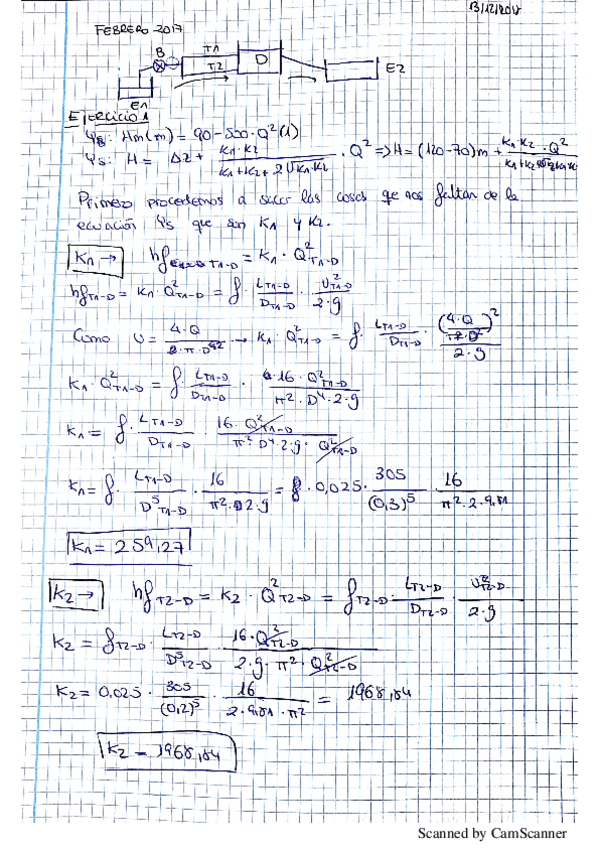 13/12/2017
FEBRERO 2017
B T1 T2 D E2
E1
Ejercicio 1
Ψs: Hm(m) = 90 - 500 · Q² (1)
Ψs: H = Δz + K1·K2 / (K1+K2+2√K1·K2) · Q² => H = (120-70)m + K1·K2 · Q² / (K1+K2+2√K1·K2)
Primero procedemos a sacar las cosas que nos faltan de la
ecuación Ψs que son K1 y K2.
K1 → hf T1-D = K1 · Q² T1-D
hf T1-D = K1 · Q² T1-D = f · L T1-D / D T1-D · U² T1-D / 2·g
Como U = 4·Q / π·D² → K1 · Q² T1-D = f · L T1-D / D T1-D · (4·Q / π·D²)² / 2·g
K1 · Q² T1-D = f · L T1-D / D T1-D · 16·Q² T1-D / π²·D⁴·2·g
K1 = f · L T1-D / D T1-D · 16·Q² T1-D / π²·D⁴·2·g·Q² T1-D
K1 = f · L T1-D / D⁵ T1-D · 16 / π²·2·g = 0,025 · 305 / (0,3)⁵ · 16 / π²·2·9,81
K1 = 259,27
K2 → hf T2-D = K2 · Q² T2-D = f T2-D · L T2-D / D T2-D · U² T2-D / 2·g
K2 = f T2-D · L T2-D / D⁵ T2-D · 16·Q² T2-D / 2·g·π²·Q² T2-D
K2 = 0,025 · 305 / (0,2)⁵ · 16 / 2·9,81·π² = 1968,84
K2 = 1968,84
Scanned by CamScanner